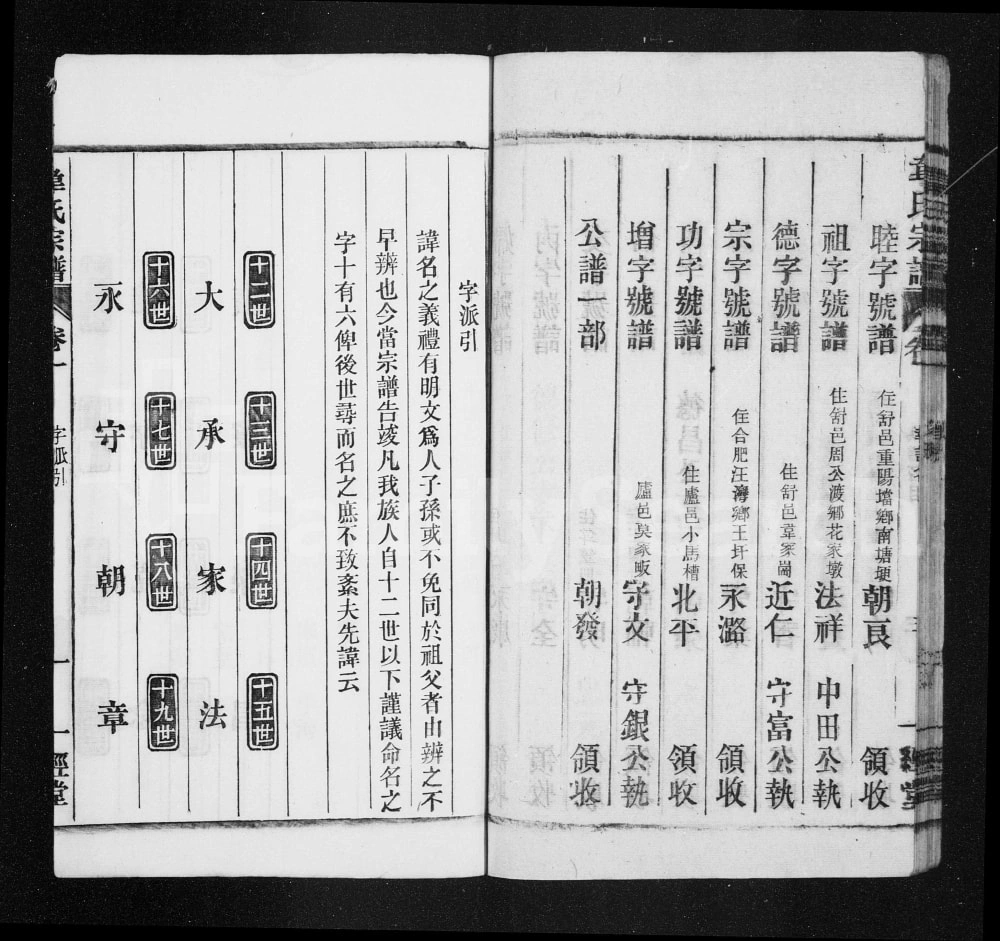 睦字號譜 住舒邑重陽壋鄉南塘埂 朝良 領收
祖字號譜 住舒邑周公渡鄉花家墩 法祥 中田公執
德字號譜 住舒邑韋家崗 近仁 守富公執
宗字號譜 住合肥汪灣鄉王圩保 永潞 領收
功字號譜 住廬邑小馬槽 北平 領收
增字號譜 廬邑吳家畈 守文 守銀公執
公譜一部 朝發 領收
字派引
諱名之義禮有明文爲人子孫或不免同於祖父者由辨之不
早辨也今當宗譜告竣凡我族人自十二世以下謹議命名之
字十有六俾後世尋而名之庶不致紊夫先諱云
十二世 十三世 十四世 十五世
大 承 家 法
十六世 十七世 十八世 十九世
永 守 朝 章
氏宗譜 卷一 字派引 一 一經堂